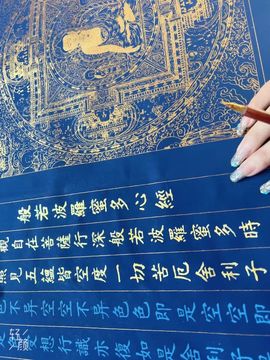 般若波羅蜜多心經
觀自在菩薩行深般若波羅蜜多時
照見五蘊皆空度一切苦厄舍利子
色不异空空不异色色即是空空即
受想行識亦復如是舍利
轻颜